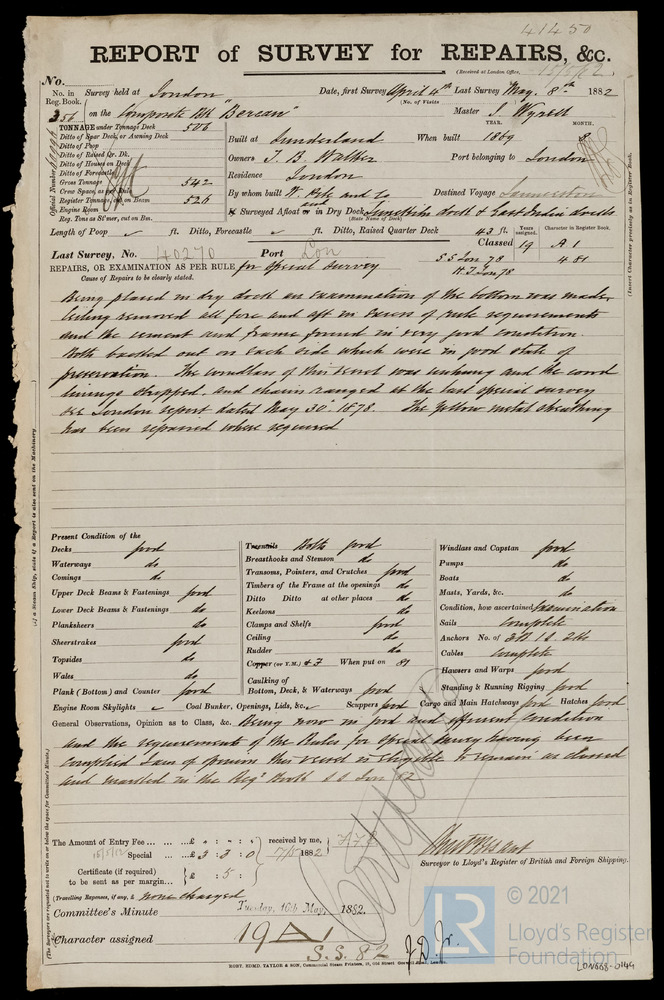 41450
REPORT of SURVEY for REPAIRS, &c.
(Received at London Office, 15/5/82
No.
No. in Reg. Book. Survey held at London Date, first Survey April 6th Last Survey May 8th 1882
(No. of Visits
356 on the Composite Bk "Berean" Master J. Wyrill
TONNAGE under Tonnage Deck 506
YEAR. MONTH.
Ditto of Spar Deck, or Awning Deck
Built at Sunderland When built 1869 8
Ditto of Poop
Ditto of Raised Qr. Dk.
Owners T. B. Walker Port belonging to London
Ditto of Houses on Deck
Ditto of Forecastle
Residence London
Gross Tonnage 542
Crew Space, as per Rule
By whom built W. Pile and Co Destined Voyage Launceston
Register Tonnage, as on Beam 526
Engine Room
If Surveyed Afloat or in Dry Dock Limekiln dock & East India docks
(State Name of Dock)
Reg. Tons as St'mer, cut on Bm.
Official Number
(Insert Character precisely as in Register Book.
Length of Poop ft. Ditto, Forecastle ft. Ditto, Raised Quarter Deck 43 ft.
Years assigned. Character in Register Book.
Classed 19 A 1
Last Survey, No. 40270 Port Lon
S S Lon 78 4.81
REPAIRS, OR EXAMINATION AS PER RULE for Special Survey
H.T. Lon 78
Cause of Repairs to be clearly stated.
Being placed in dry dock an examination of the bottom was made,
ceiling removed all fore and aft in excess of rule requirements
and the cement and frame found in very good condition.
Bolts backed out on each side which were in good state of
preservation. The windlass of this vessel was unhung and the wood
linings stripped, and chains ranged at the last special survey
see London report dated May 30th 1878. The yellow metal sheathing
has been repaired where required
(If a Steam Ship, state if a Report is also sent on the Machinery
Present Condition of the
Decks good
Waterways do
Comings do
Upper Deck Beams & Fastenings good
Lower Deck Beams & Fastenings do
Planksheers do
Sheerstrakes good
Topsides do
Wales do
Plank (Bottom) and Counter good
Treenails Bolts good
Breasthooks and Stemson do
Transoms, Pointers, and Crutches good
Timbers of the Frame at the openings do
Ditto Ditto at other places do
Keelsons do
Clamps and Shelfs good
Ceiling do
Rudder do
Copper (or Y.M.) & F When put on 81
Caulking of
Bottom, Deck, & Waterways good
Windlass and Capstan good
Pumps do
Boats do
Masts, Yards, &c. do
Condition, how ascertained Examination
Sails Complete
Anchors No. of 3B 1S 2Ks
Cables Complete
Hawsers and Warps good
Standing & Running Rigging good
Engine Room Skylights Coal Bunker, Openings, Lids, &c. Scuppers good Cargo and Main Hatchways good Hatches good
General Observations, Opinion as to Class, &c. Being now in good and efficient condition
and the requirements of the Rules for Special Survey having been
complied I am of opinion this vessel is eligible to remain as classed
and marked in the Regr Book S S Lon 82
(The Surveyors are requested not to write on or below the space for Committee's Minute.)
The Amount of Entry Fee ... £ : : received by me,
Special ... £ 3 : 3 : 0 1882
Certificate (if required) to be sent as per margin... £ : 5 :
Surveyor to Lloyd's Register of British and Foreign Shipping.
(Travelling Expenses, if any, £ none charged
Committee's Minute Tuesday, 16th May, 1882.
Character assigned 19 A 1
S.S. 82 J.D. Jr.
ROBT. EDMD. TAYLOR & SON, Commercial Steam Printers, 19, Old Street Goswell Road, London.
LR
© 2021
Lloyd's Register
Foundation
LON668-0144